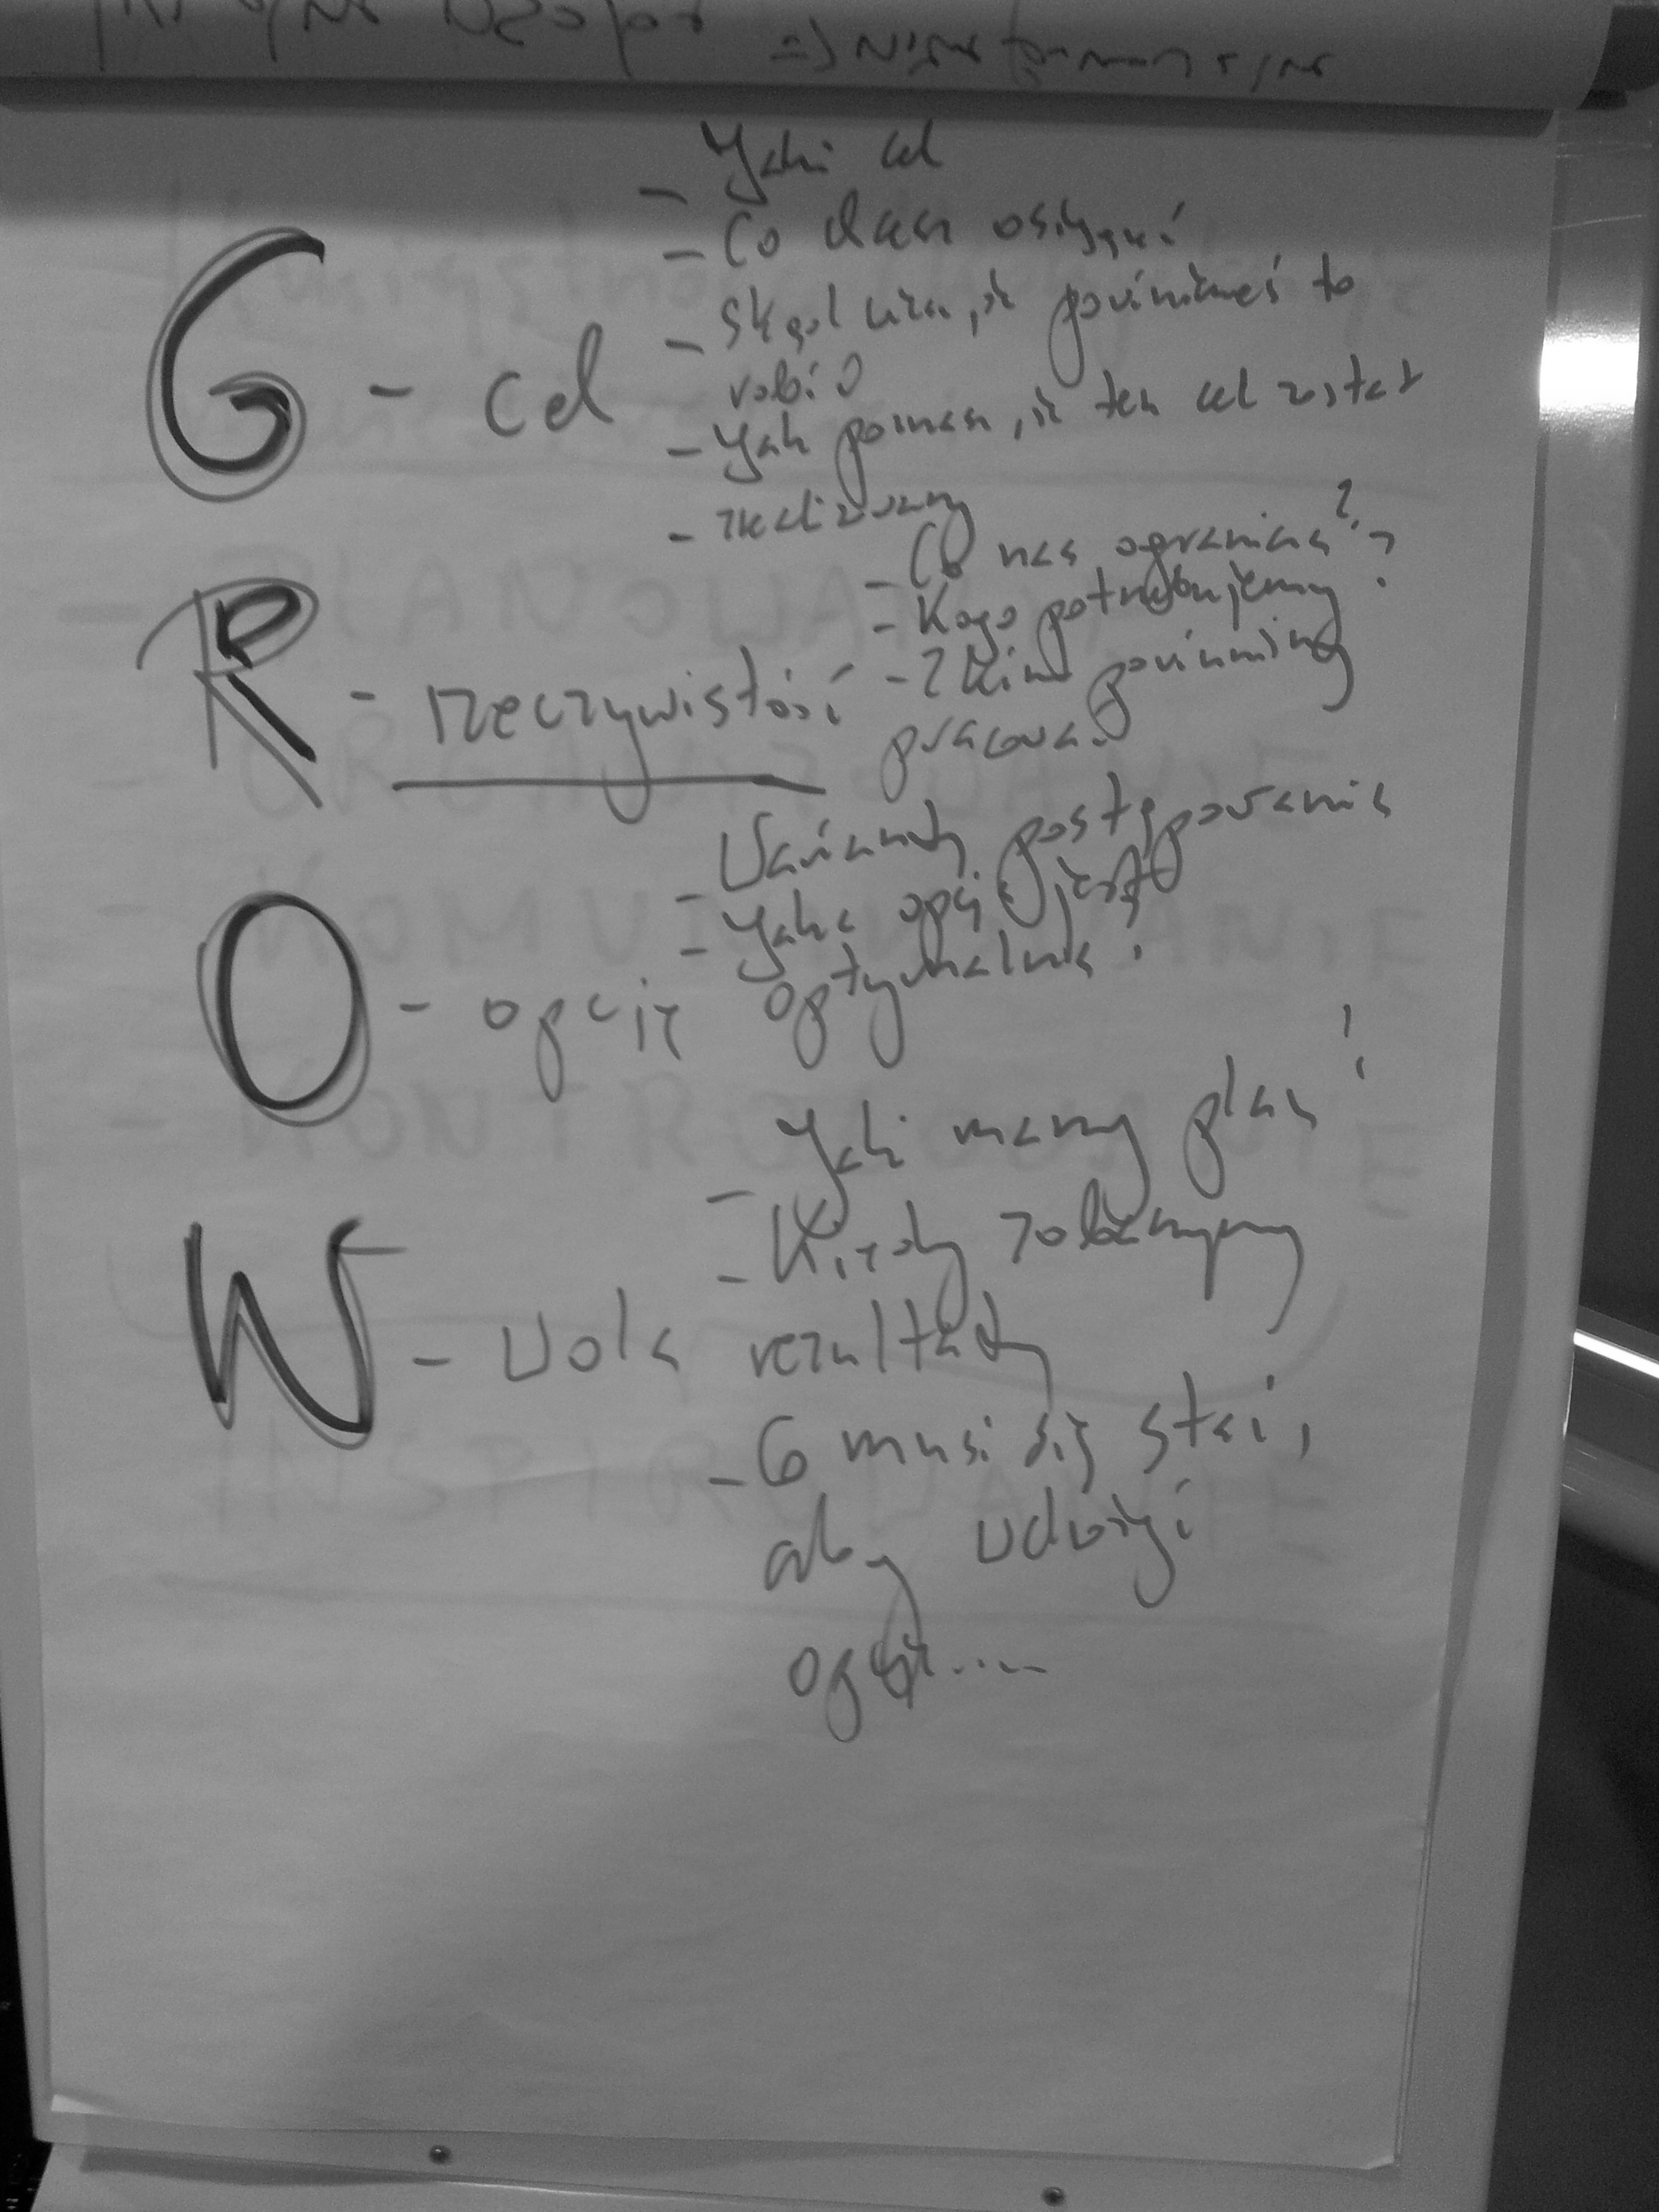 G - cel
- Jaki cel
- Co chcesz osiągnąć
- Skąd wiesz, że powinieneś to
robić
- Jak poznasz, że ten cel został
- realizowany
R - rzeczywistość
- Co nas ogranicza?
- Kogo potrzebujemy?
- Z kim powinniśmy
pracować
O - opcje
- Warianty postępowania
- Jaka opcja jest
optymalna?
W - Wola
- Jaki mamy plan?
- Kiedy zobaczymy
rezultaty
- Co musi się stać,
aby wdrożyć
opcję....